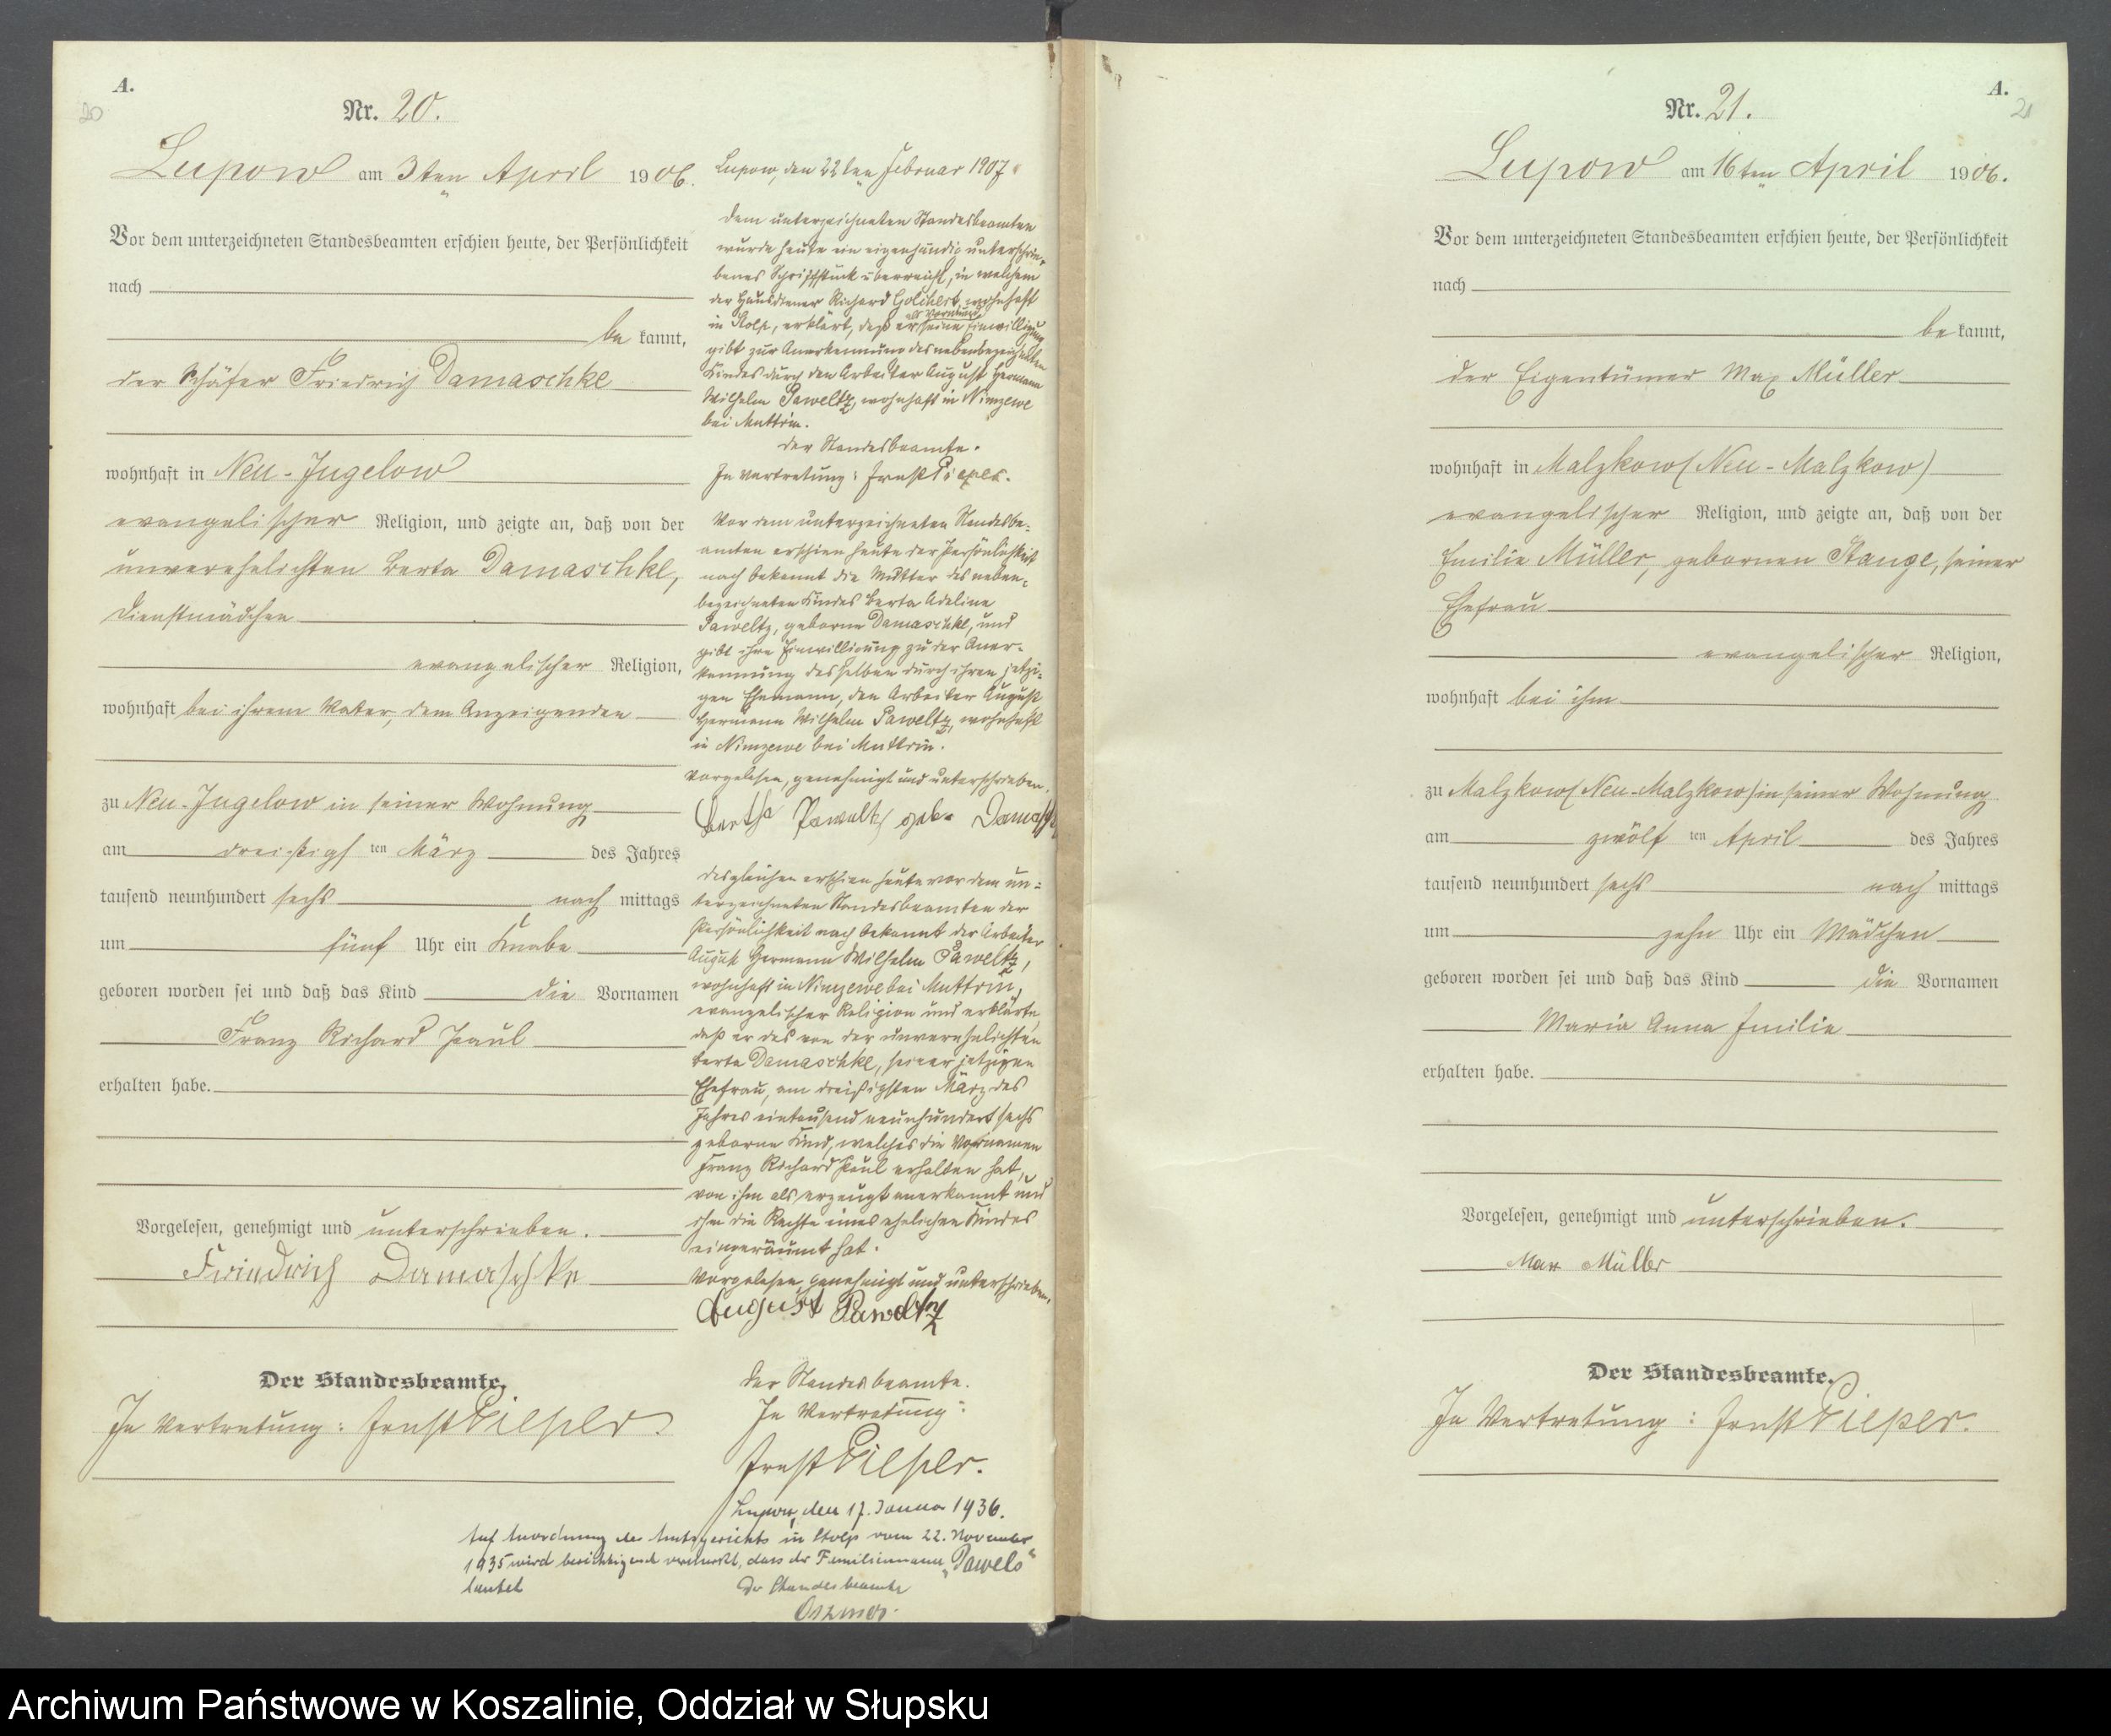 A.
20
Nr. 20.
Lupow am 3ten April 1906.
Vor dem unterzeichneten Standesbeamten erschien heute, der Persönlichkeit
nach
be kannt,
der Schäfer Friedrich Damaschke
wohnhaft in Neu-Jugelow
evangelischer Religion, und zeigte an, daß von der
unverehelichten Berta Damaschke,
Dienstmädchen
evangelischer Religion,
wohnhaft bei ihrem Vater, dem Anzeigenden
zu Neu-Jugelow in seiner Wohnung
am dreißigsten März des Jahres
tausend neunhundert sechs nach mittags
um fünf Uhr ein Knabe
geboren worden sei und daß das Kind die Vornamen
Franz Richard Paul
erhalten habe.
Vorgelesen, genehmigt und unterschrieben.
Friedrich Damaschke
Der Standesbeamte.
In Vertretung: Ernst Pieper
Lupow, den 22ten Februar 1907.
Dem unterzeichneten Standesbeamten
wurde heute ein eigenhändig unterschrie-
benes Schriftstück überreicht, in welchem
der Hausdiener Richard Golchert, wohnhaft
in Stolp, erklärt, daß er als Vormund seine Einwilligung
gibt zur Anerkennung des nebenbezeichneten
Kindes durch den Arbeiter August Hermann
Wilhelm Paweltz, wohnhaft in Nimzewe
bei Muttrin.
Der Standesbeamte.
In Vertretung: Ernst Pieper.
Vor dem unterzeichneten Standesbe-
amten erschien heute der Persönlichkeit
nach bekannt die Mutter des neben-
bezeichneten Kindes Berta Adeline
Paweltz, geborne Damaschke, und
gibt ihre Einwilligung zu der Aner-
kennung desselben durch ihren jetzi-
gen Ehemann, den Arbeiter August
Hermann Wilhelm Paweltz, wohnhaft
in Nimzewe bei Muttrin.
Vorgelesen, genehmigt und unterschrieben.
Bertha Paweltz geb. Damaschke
Desgleichen erschien heute vor dem un-
terzeichneten Standesbeamten der
Persönlichkeit nach bekannt der Arbeiter
August Hermann Wilhelm Paweltz,
wohnhaft in Nimzewe bei Muttrin,
evangelischer Religion und erklärte,
daß er das von der unverehelichten
Berta Damaschke, seiner jetzigen
Ehefrau, am dreißigsten März des
Jahres eintausend neunhundert sechs
geborne Kind, welches die Vornamen
Franz Richard Paul erhalten hat,
von ihm als erzeugt anerkannt und
ihm die Rechte eines ehelichen Kindes
eingeräumt hat.
Vorgelesen, genehmigt und unterschrieben.
August Paweltz
Der Standesbeamte.
In Vertretung:
Ernst Pieper.
Lupow, den 17. Januar 1936.
Auf Anordnung des Amtsgerichts in Stolp vom 22. November
1935 wird berichtigend vermerkt, dass der Familienname „Pawels“
lautet
Der Standesbeamte
A.
21
Nr. 21.
Lupow am 16ten April 1906.
Vor dem unterzeichneten Standesbeamten erschien heute, der Persönlichkeit
nach
be kannt,
der Eigentümer Max Müller
wohnhaft in Malzkow (Neu-Malzkow)
evangelischer Religion, und zeigte an, daß von der
Emilie Müller, gebornen Stange, seiner
Ehefrau
evangelischer Religion,
wohnhaft bei ihm
zu Malzkow (Neu-Malzkow) in seiner Wohnung
am zwölf ten April des Jahres
tausend neunhundert sechs nach mittags
um zehn Uhr ein Mädchen
geboren worden sei und daß das Kind die Vornamen
Maria Anna Emilie
erhalten habe.
Vorgelesen, genehmigt und unterschrieben.
Max Müller
Der Standesbeamte.
In Vertretung: Ernst Pieper.
Archiwum Państwowe w Koszalinie, Oddział w Słupsku